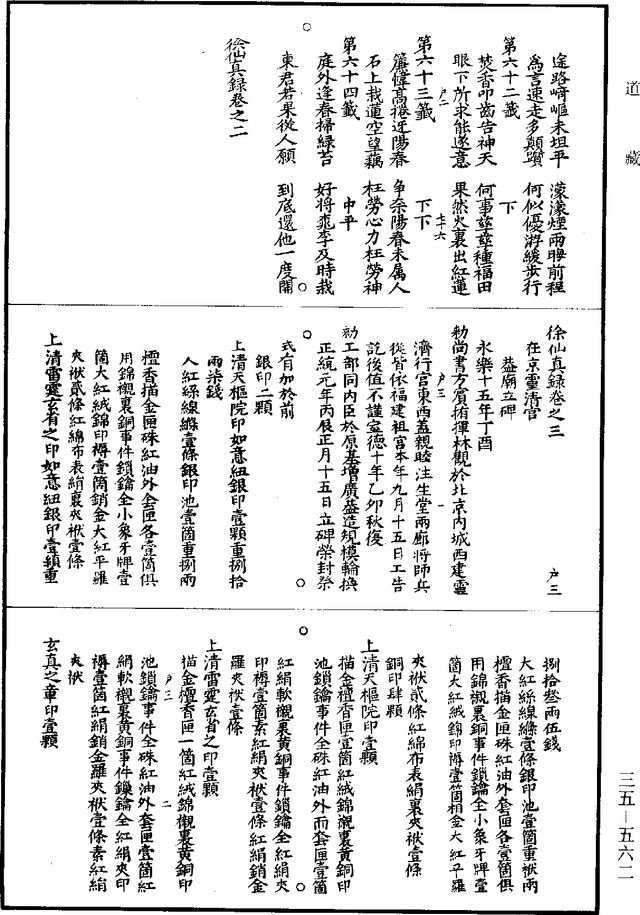 道藏
途路崎嶇未坦平　濛濛煙雨晦前程
爲言速走多顛躓　何似優游緩步行
第六十二籤　下
焚香叩齒告神天　何事鼟鼟種福田
眼下所求能遂意　果然火裏出紅蓮
户二　七十六
第六十三籤　下下
簾幃高捲近陽春　争奈陽春未属人
石上栽蓮空望藕　枉勞心力枉勞神
第六十四籤　中平
庭外逢春掃緑苔　好將桃李及時栽
東君若果從人願　到底還他一度開
徐仙真録卷之二
徐仙真録卷之三　户三
在京靈清宫
葢廟立碑
永樂十五年丁酉
勅尚書方賓指揮林觀於北京内城西建靈
濟行宫東西蓋親睦注生堂兩廊將師兵
户三　一
從皆依福建祖宫本年九月十五日工告
訖後值不謹宣德十年乙卯秋復
勅工部同内臣於原基增廣葢造規模輪换
正統元年丙辰正月十五日立碑榮封祭
式有加於前
銀印二顆
上清天樞院印如意紐銀印壹顆重捌拾
兩柒錢
大紅絲線縧壹條銀印池壹箇重捌兩
檀香描金匣硃紅油外套匣各壹箇俱
用錦襯裏銅事件鎖鑰全小象牙牌壹
箇大紅絨錦印褥壹箇銷金大紅平羅
夾袱貳條紅綿布表絹裏夾袱壹條
上清雷霆玄省之印如意紐銀印壹顆重
捌拾叁兩伍錢
大紅絲線縧壹條銀印池壹箇重捌兩
檀香描金匣硃紅油外套匣各壹箇俱
用錦襯裏銅事件鎖鑰全小象牙牌壹
箇大紅絨錦印褥壹箇銷金大紅平羅
夾袱貳條紅綿布表絹裏夾袱壹條
銅印肆顆
上清天樞院印壹顆
描金檀香匣壹箇紅絨錦襯裏黄銅印
池鎖鑰事件全硃紅油外面套匣壹箇
紅絹軟襯裏黄銅事件鎖鑰全紅絹夾
印褥壹箇素紅絹夾袱壹條紅絹銷金
羅夾袱壹條
上清雷霆玄省之印壹顆
描金檀香匣一箇紅絨錦襯裏黄銅印
户三　二
池鎖鑰事件全硃紅油外套匣壹箇紅
絹軟襯裏黄銅事件鎖鑰全紅絹夾印
褥壹箇紅絹銷金羅夾袱壹條素紅絹
夾袱
玄真之章印壹顆
三五－五六二